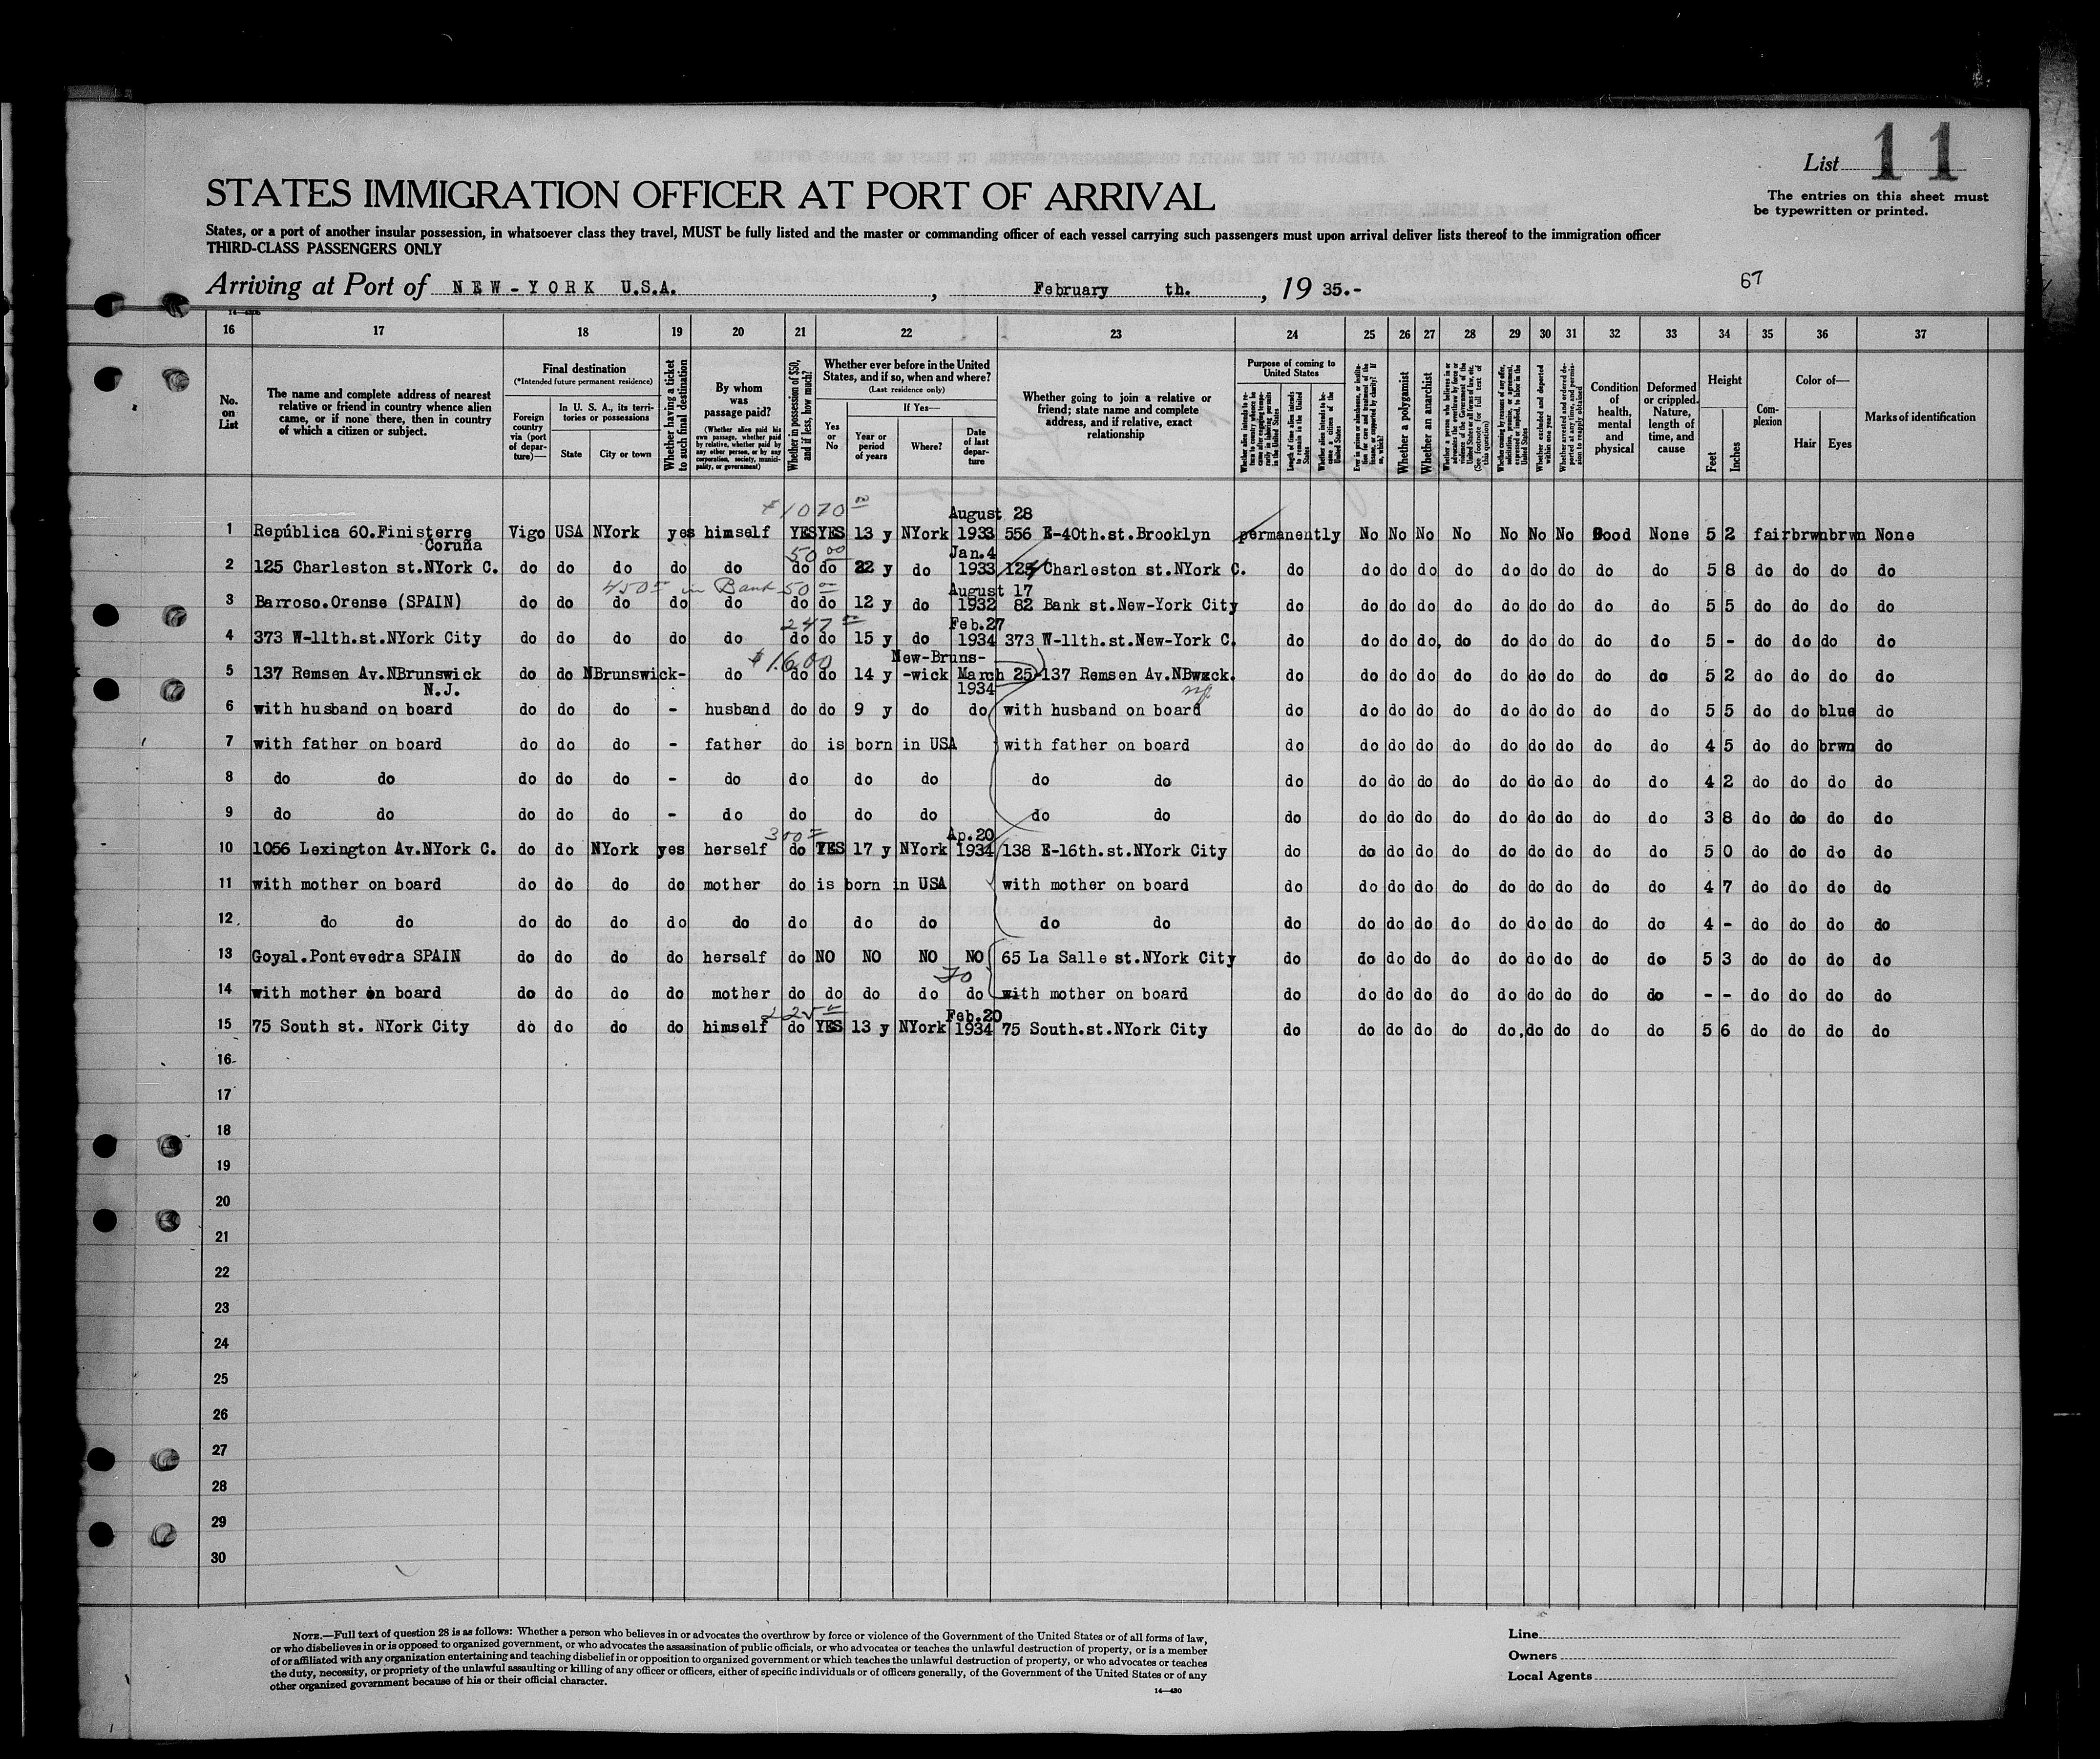 List 11
The entries on this sheet must
be typewritten or printed.
STATES IMMIGRATION OFFICER AT PORT OF ARRIVAL
States, or a port of another insular possession, in whatsoever class they travel, MUST be fully listed and the master or commanding officer of each vessel carrying such passengers must upon arrival deliver lists thereof to the immigration officer
THIRD-CLASS PASSENGERS ONLY
Arriving at Port of NEW-YORK U.S.A. , February th. , 19 35.-
67
16 17 18 19 20 21 22 23 24 25 26 27 28 29 30 31 32 33 34 35 36 37
No. on List
The name and complete address of nearest relative or friend in country whence alien came, or if none there, then in country of which a citizen or subject.
Final destination
(*Intended future permanent residence)
Foreign country via (port of departure)—
In U. S. A., its territories or possessions
State City or town
Whether having a ticket to such final destination
By whom was passage paid?
(Whether alien paid his own passage, whether paid by relative, whether paid by any other person, or by any corporation, society, municipality, or government)
Whether in possession of $50, and if less, how much?
Whether ever before in the United States, and if so, when and where?
(Last residence only)
Yes or No
If Yes—
Year or period of years
Where?
Date of last departure
Whether going to join a relative or friend; state name and complete address, and if relative, exact relationship
Purpose of coming to United States
Whether a polygamist
Whether an anarchist
Condition of health, mental and physical
Deformed or crippled. Nature, length of time, and cause
Height
Feet Inches
Complexion
Color of—
Hair Eyes
Marks of identification
$1070 00
August 28
1 República 60.Finisterre Vigo USA NYork yes himself YES YES 13 y NYork 1933 556 E-40th.st.Brooklyn permanently No No No No No No No Good None 5 2 fair brwn brwn None
Coruña
50 00 Jan.4
2 125 Charleston st.NYork C. do do do do do do do 22 y do 1933 125 Charleston st.NYork C. do do do do do do do do do do 5 8 do do do do
450 00 in Bank 50 00 August 17
3 Barroso.Orense (SPAIN) do do do do do do do 12 y do 1932 82 Bank st.New-York City do do do do do do do do do do 5 5 do do do do
247 00 Feb.27
4 373 W-11th.st.NYork City do do do do do do do 15 y do 1934 373 W-11th.st.New-York C. do do do do do do do do do do 5 - do do do do
$1600 New-Bruns-
5 137 Remsen Av.NBrunswick do do NBrunswick- do do do 14 y -wick March 25 137 Remsen Av.NBwzck. do do do do do do do do do do 5 2 do do do do
N.J. 1934
6 with husband on board do do do - husband do do 9 y do do with husband on board do do do do do do do do do do 5 5 do do blue do
7 with father on board do do do - father do is born in USA with father on board do do do do do do do do do do 4 5 do do brwn do
8 do do do do do - do do do do do do do do do do do do do do do do 4 2 do do do do
9 do do do do do - do do do do do do do do do do do do do do do do 3 8 do do do do
300 Ap.20
10 1056 Lexington Av.NYork C. do do NYork yes herself do YES 17 y NYork 1934 138 E-16th.st.NYork City do do do do do do do do do do 5 0 do do do do
11 with mother on board do do do do mother do is born in USA with mother on board do do do do do do do do do do 4 7 do do do do
12 do do do do do do do do do do do do do do do do do do do do do do 4 - do do do do
13 Goyal.Pontevedra SPAIN do do do do herself do NO NO NO NO 65 La Salle st.NYork City do do do do do do do do do do 5 3 do do do do
70
14 with mother on board do do do do mother do do do do do with mother on board do do do do do do do do do do - - do do do do
225 Feb.20
15 75 South st. NYork City do do do do himself do YES 13 y NYork 1934 75 South.st.NYork City do do do do do do do do do do 5 6 do do do do
16
17
18
19
20
21
22
23
24
25
26
27
28
29
30
NOTE.—Full text of question 28 is as follows: Whether a person who believes in or advocates the overthrow by force or violence of the Government of the United States or of all forms of law,
or who disbelieves in or is opposed to organized government, or who advocates the assassination of public officials, or who advocates or teaches the unlawful destruction of property, or is a member
of or affiliated with any organization entertaining and teaching disbelief in or opposition to organized government or which teaches the unlawful destruction of property, or who advocates or teaches
the duty, necessity, or propriety of the unlawful assaulting or killing of any officer or officers, either of specific individuals or of officers generally, of the Government of the United States or of any
other organized government because of his or their official character.
14—430
Line
Owners
Local Agents